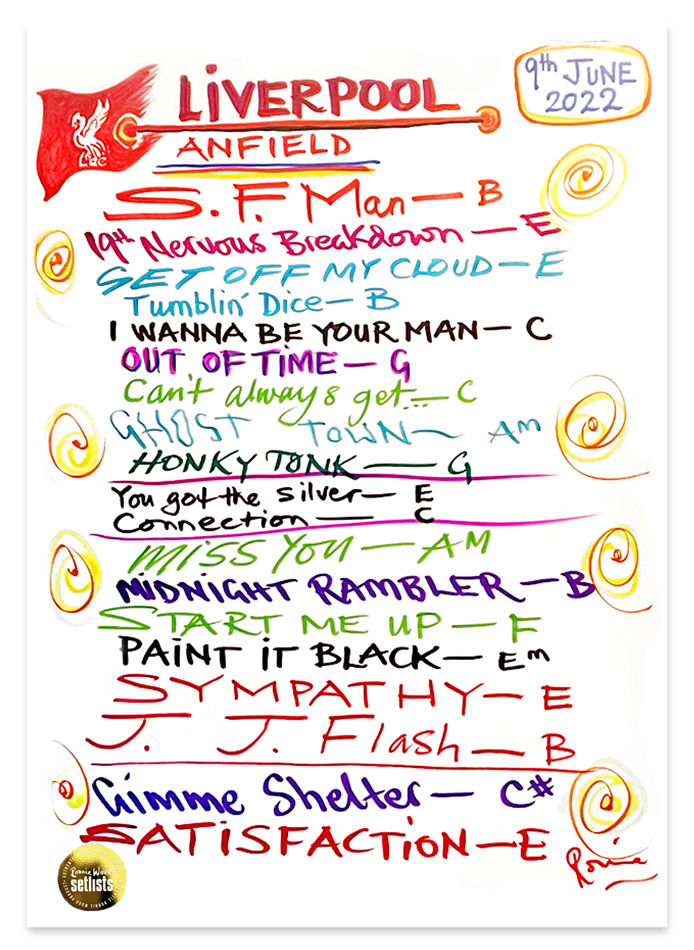 LIVERPOOL
9th JUNE
2022
LFC
ANFIELD
S.F. Man — B
19th Nervous Breakdown — E
GET OFF MY CLOUD — E
Tumblin' Dice — B
I WANNA BE YOUR MAN — C
OUT OF TIME — G
Can't always get... — C
GHOST TOWN — Am
HONKY TONK — G
You got the silver — E
Connection — C
MISS YOU — AM
MIDNIGHT RAMBLER — B
START ME UP — F
PAINT IT BLACK — Em
SYMPATHY — E
J. J. Flash — B
Gimme Shelter — C#
SATISFACTION — E
Ronnie
Ronnie Wood
setlists